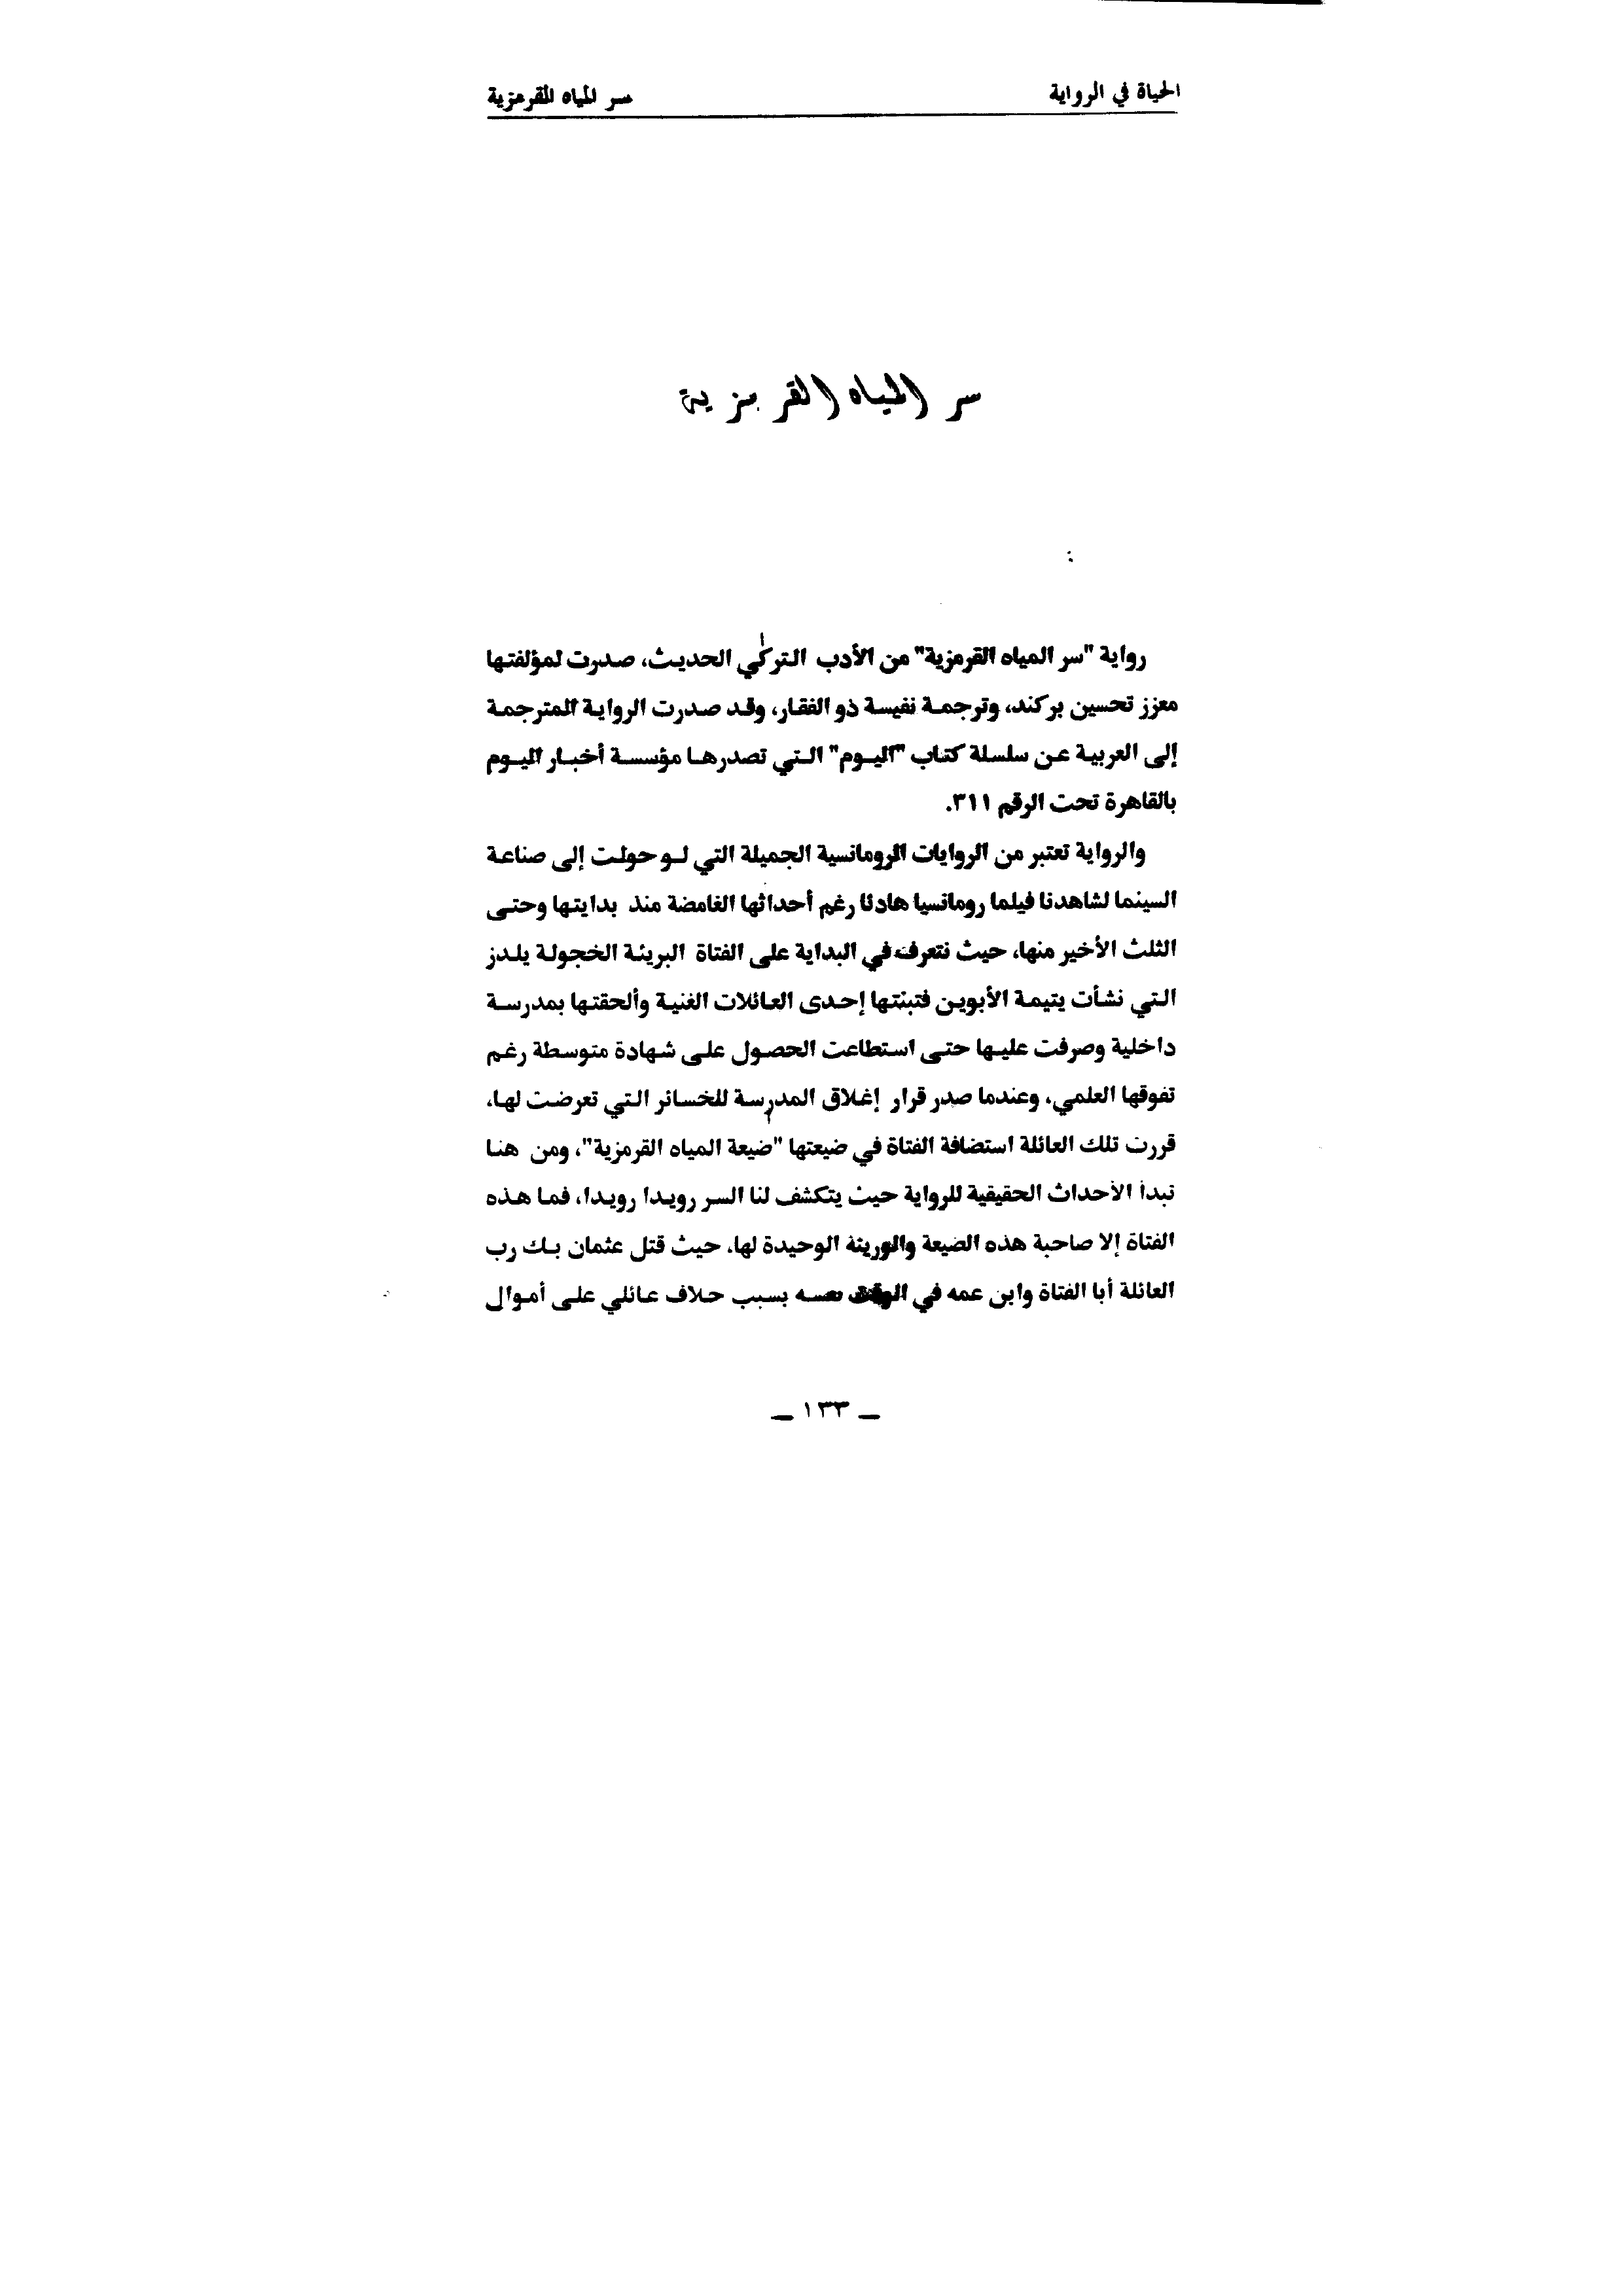 الحياة في الرواية
سر المياه القرمزية
سر المياه القرمزية
رواية "سر المياه القرمزية" من الأدب التركي الحديث، صدرت لمؤلفتها
معزز تحسين بركند، وترجمة نفيسة ذو الفقار، وقد صدرت الرواية المترجمة
إلى العربية عن سلسلة كتاب "اليوم" التي تصدرها مؤسسة أخبار اليوم
بالقاهرة تحت الرقم ٣١١.
والرواية تعتبر من الروايات الرومانسية الجميلة التي لو حولت إلى صناعة
السينما لشاهدنا فيلما رومانسيا هادئا رغم أحداثها الغامضة منذ بدايتها وحتى
الثلث الأخير منها، حيث نتعرف في البداية على الفتاة البريئة الخجولة يلدز
التي نشأت يتيمة الأبوين فتبنتها إحدى العائلات الغنية وألحقتها بمدرسة
داخلية وصرفت عليها حتى استطاعت الحصول على شهادة متوسطة رغم
تفوقها العلمي، وعندما صدر قرار إغلاق المدرسة للخسائر التي تعرضت لها،
قررت تلك العائلة استضافة الفتاة في ضيعتها "ضيعة المياه القرمزية"، ومن هنا
تبدأ الأحداث الحقيقية للرواية حيث يتكشف لنا السر رويدا رويدا، فما هذه
الفتاة إلا صاحبة هذه الضيعة والوريثة الوحيدة لها، حيث قتل عثمان بك رب
العائلة أبا الفتاة وابن عمه في الوقت نفسه بسبب خلاف عائلي على أموال
ـ ١٣٣ ـ